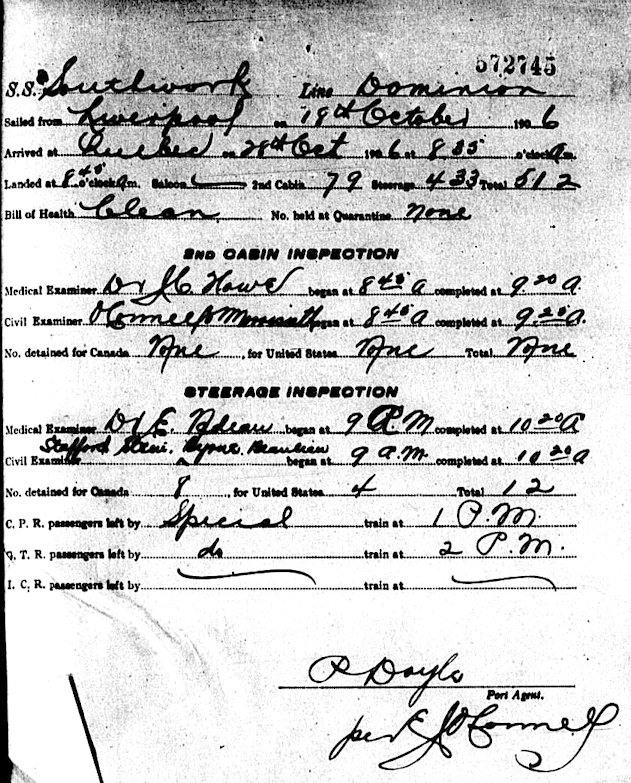 572745
S.S. Southwork Line Dominion
Sailed from Liverpool on 18th October 1906
Arrived at Quebec on 28th Oct 1906 at 8 35 o'clock a m.
Landed at 8 45 o'clock a m. Saloon — 2nd Cabin 79 Steerage 433 Total 512
Bill of Health Clean No. held at Quarantine None
2ND CABIN INSPECTION
Medical Examiner Dr J.C. Howe began at 8 45 a completed at 9.20 a.
Civil Examiner O'Connell began at 8 45 a completed at 9.20 a.
No. detained for Canada None, for United States None Total None
STEERAGE INSPECTION
Medical Examiner Dr J.E. Nadeau began at 9 A.M completed at 10 20 a
Stafford Stein, Byrne, Beaubien
Civil Examiner began at 9 a.m. completed at 10 20 a
No. detained for Canada 8, for United States 4 Total 12
C. P. R. passengers left by Special train at 1 P.M.
G. T. R. passengers left by do train at 2 P.M.
I. C. R. passengers left by — train at —
P Doyle
Port Agent.
per E J O'Connell